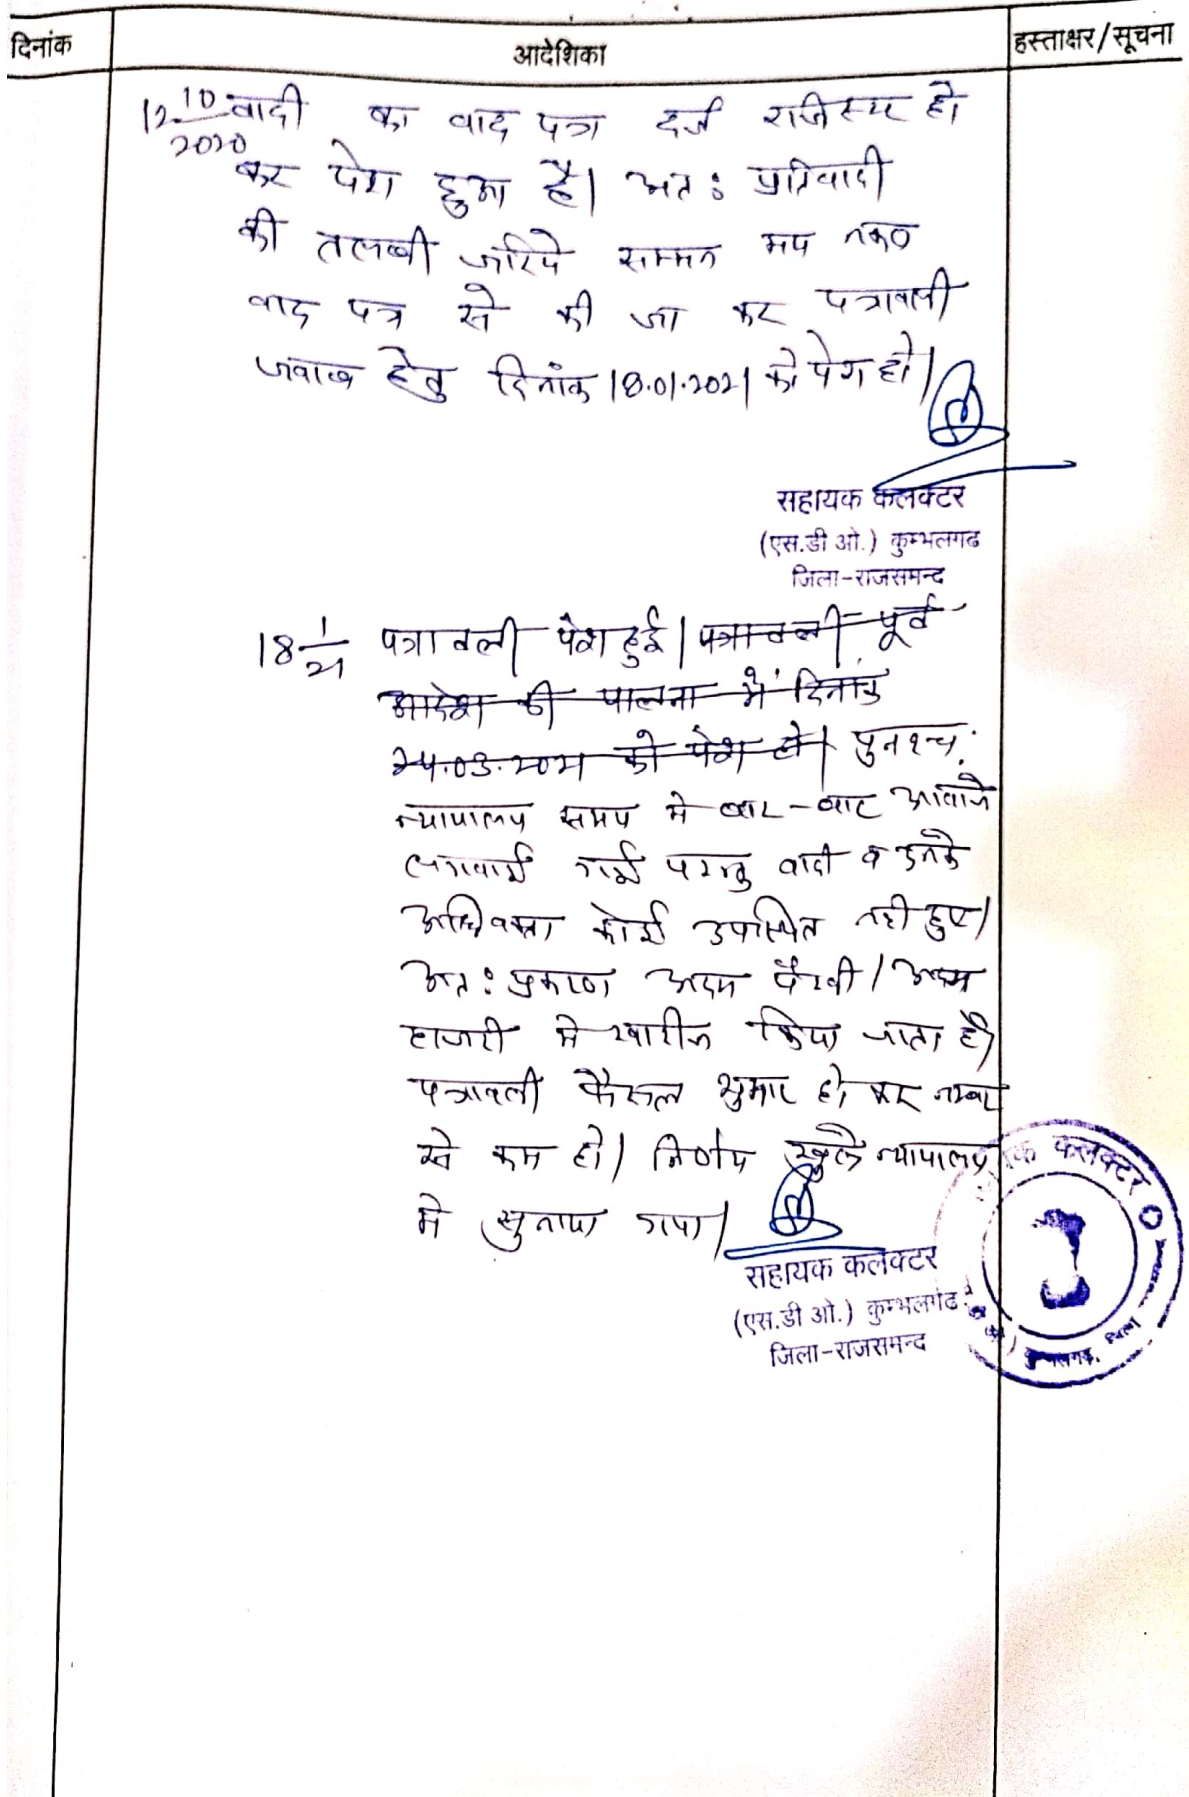 दिनांक
आदेशिका
हस्ताक्षर/सूचना
12 10/2020 वादी का वाद पत्र दर्ज रजिस्टर हो
कर पेश हुआ है। अतः प्रतिवादी
की तलबी जरिये सम्मन मय नकल
वाद पत्र से की जा कर पत्रावली
जवाब हेतु दिनांक 18.01.2021 को पेश हो।
सहायक कलक्टर
(एस.डी ओ.) कुम्भलगढ
जिला-राजसमन्द
18 1/21 पत्रावली पेश हुई। पत्रावली पूर्व
आदेश की पालना में दिनांक
24.03.2021 को पेश हो। पुनश्च:
न्यायालय समय मे बार-बार आवाजे
लगवाई गई परन्तु वादी व उनके
अधिवक्ता कोई उपस्थित नही हुए।
अतः प्रकरण अदम पैरवी/अदम
हाजरी मे खारीज किया जाता है।
पत्रावली फैसल शुमार हो कर नम्बर
से कम हो। निर्णय खुले न्यायालय
मे सुनाया गया।
सहायक कलक्टर
(एस.डी ओ.) कुम्भलगढ
जिला-राजसमन्द
क कलक्टर
कुम्भलगढ़, जिला